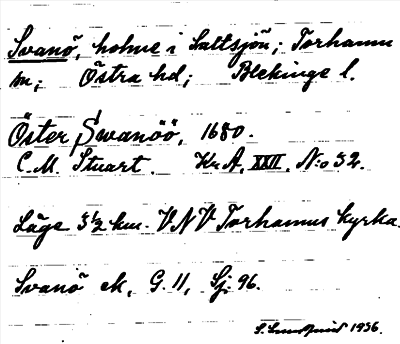 Svanö, holme i Saltsjön; Torhamn
sn; Östra hd; Blekinge l.
Öster Swanöö, 1680.
C. M. Stuart. Kr. A. XXII. N:o 32.
Läge 3 1/2 km. VNV Torhamns kyrka.
Svanö ek, G. 11, Sj. 96.
1936.